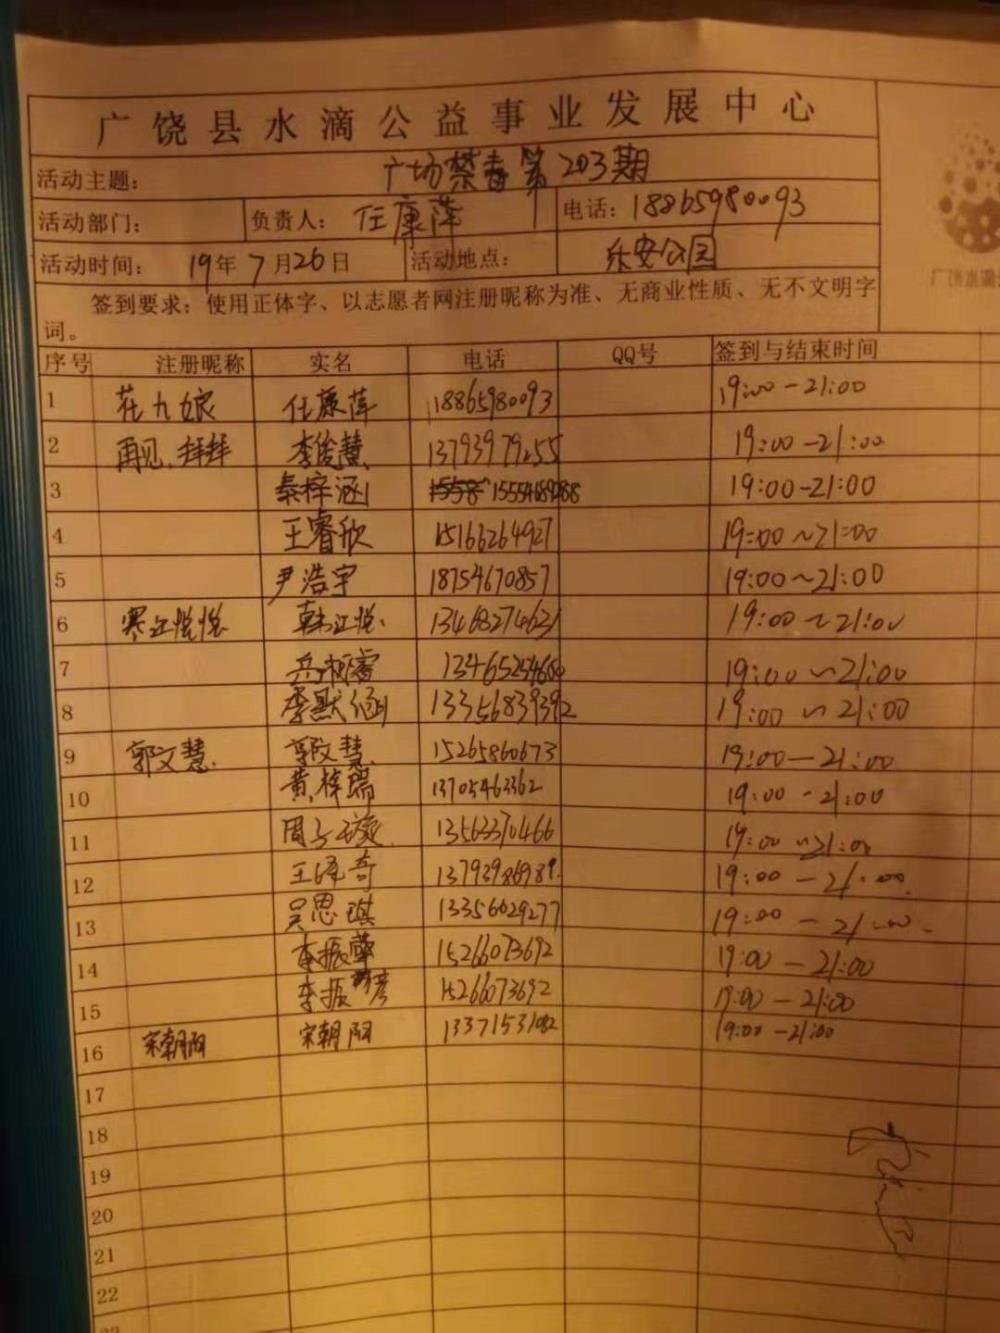 广饶县水滴公益事业发展中心
活动主题： 广场禁毒第203期
活动部门： 负责人： 任康萍 电话：18865980093
活动时间： 19年7月26日 活动地点： 乐安公园
签到要求：使用正体字、以志愿者网注册昵称为准、无商业性质、无不文明字
词。
序号 注册昵称 实名 电话 QQ号 签到与结束时间
1 花九娘 任康萍 18865980093 19:00-21:00
2 再见.拜拜 李俊慧 13793979255 19:00-21:00
3 秦梓涵 19:00-21:00
4 王睿欣 15166264927 19:00~21:00
5 尹浩宇 18754670857 19:00~21:00
6 寒江悦悦 韩江悦 13468274631 19:00~21:00
7 19:00~21:00
8 李默涵 13356839392 19:00~21:00
9 郭文慧 郭文慧 15265860673 19:00-21:00
10 黄梓瑞 13705463362 19:00-21:00
11 周子璇 13563370466 19:00~21:00
12 王泽奇 19:00-21:00
13 吴思琪 13356029277 19:00-21:00
14 李振 15266073692 19:00-21:00
15 李振彦 15266073692 19:00-21:00
16 宋朝阳 宋朝阳 13371531082 19:00-21:00
17
18
19
20
21
22